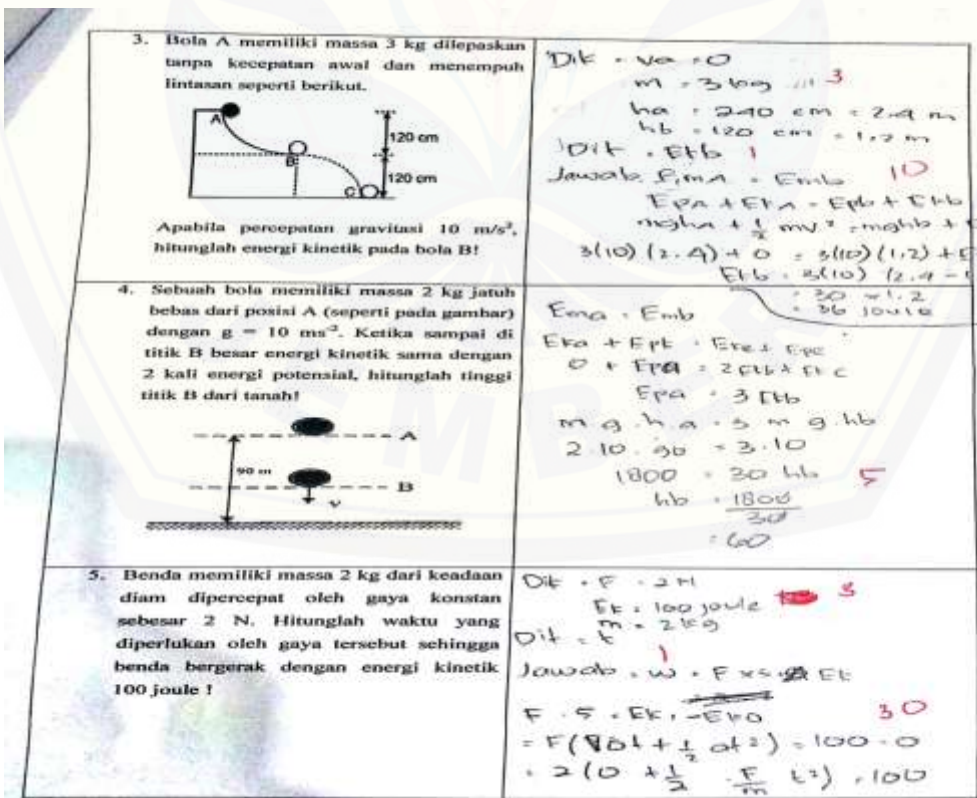 3. Bola A memiliki massa 3 kg dilepaskan
tanpa kecepatan awal dan menempuh
lintasan seperti berikut.
A
B
C
120 cm
120 cm
Apabila percepatan gravitasi 10 m/s²,
hitunglah energi kinetik pada bola B!
Dik = Va = 0
m = 3 kg 3
ha = 240 cm = 2.4 m
hb = 120 cm = 1,2 m
Dit = Ekb 1
Jawab. EmA = Emb 10
EpA + EkA = Epb + Ekb
mgha + 1/2 mv² = mghb +
3(10) (2.4) + 0 = 3(10) (1,2) + E
Ekb = 3(10) (2.4 -
= 30 x 1.2
= 36 joule
4. Sebuah bola memiliki massa 2 kg jatuh
bebas dari posisi A (seperti pada gambar)
dengan g = 10 ms⁻². Ketika sampai di
titik B besar energi kinetik sama dengan
2 kali energi potensial, hitunglah tinggi
titik B dari tanah!
A
90 m
B
v
Ema = Emb
0 + Epa = 2
Epa = 3
m g . h a = 3 m g . hb
2 . 10 . 90 = 3 . 10
1800 = 30 hb 5
hb = 1800
30
= 60
5. Benda memiliki massa 2 kg dari keadaan
diam dipercepat oleh gaya konstan
sebesar 2 N. Hitunglah waktu yang
diperlukan oleh gaya tersebut sehingga
benda bergerak dengan energi kinetik
100 joule !
Dik = F = 2 N
Ek = 100 joule 3
m = 2 kg
Dit = t
1
Jawab = w = F x s = Ek
F . s = Ek, - Ek0 30
= F(V0t + 1/2 at²) = 100 - 0
= 2 (0 + 1/2 . F/m t²) = 100